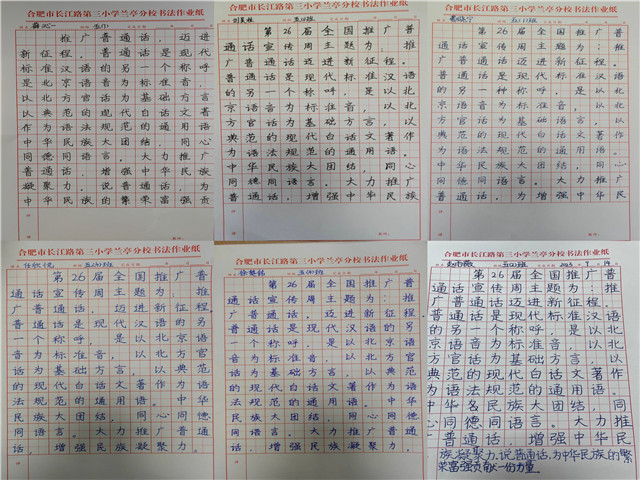 合肥市长江路第三小学兰亭分校书法作业纸
推广普通话，迈进
新征程。普通话是现代
标准汉语的另一个称呼
是北京语音为标准音，
以北方官话为基础方言
以典范的现代白话文著
作为语法规范的通用语
中华民族大团结，同心
同德同语言。大力推广
普通话，增强中华民族
凝聚力。说普通话，为
中华民族的繁荣富强贡
合肥市长江路第三小学兰亭分校书法作业纸
第26届全国推广普
通话宣传周主题为：推
广普通话迈进新征程。
普通话是现代标准汉语
的另一个称呼，是以北
京语音为标准音，以北
方官话为基础方言，以
典范的现代白话文著作
为语法规范的通用语。
中华民族大团结，同心
同德同语言。大力推广
普通话，增强中华民族
合肥市长江路第三小学兰亭分校书法作业纸
第26届全国推广普
通话宣传周主题为：推
广普通话迈进新征程。
普通话是现代标准汉语
的另一种称呼，是以北
京语音为标准音，以北
方官话为基础语言，以
典范的现代白话文著作
为语法规范的通用语。
中华民族大团结，同心
同德同语言。大力推广
普通话，为增强中华民
合肥市长江路第三小学兰亭分校书法作业纸
第26届全国推广普
通话宣传周主题为：推
广普通话，迈进新征程
普通话是现代汉语的另
一个称呼，是以北京语
音为标准音，以北方官
话为基础方言，以典范
的现代白话文著作为语
法规范的通用语。中华
民族大团结，同心同德
同语言。大力推广普通
话，增强民族凝聚力。
合肥市长江路第三小学兰亭分校书法作业纸
第26届全国推广普
通话宣传周主题为：推
广普通话，迈进新征程
普通话是现代汉语的另
一个称呼，是以北京语
音为标准音，以北方官
话为基础方言，以典范
的现代白话文著作为语
法规范的通用语。中华
民族大团结，同心同德
同语言。大力推广普通
话，增强民族凝聚力。
合肥市长江路第三小学兰亭分校书法作业纸
第26届全国推广普
通话宣传周主题为：推
广普通话迈进新征程。
普通话是现代标准汉语
的另一个称呼，是以北
京语音为标准音，以北
方官话为基础方言，以
典范的现代白话文著作
为语法规范的通用语。
中华各民族大团结，同
心同德同语言。大力推
广普通话，增强中华民
族凝聚力。说普通话，为中华民族的繁
荣富强贡献一份力量。